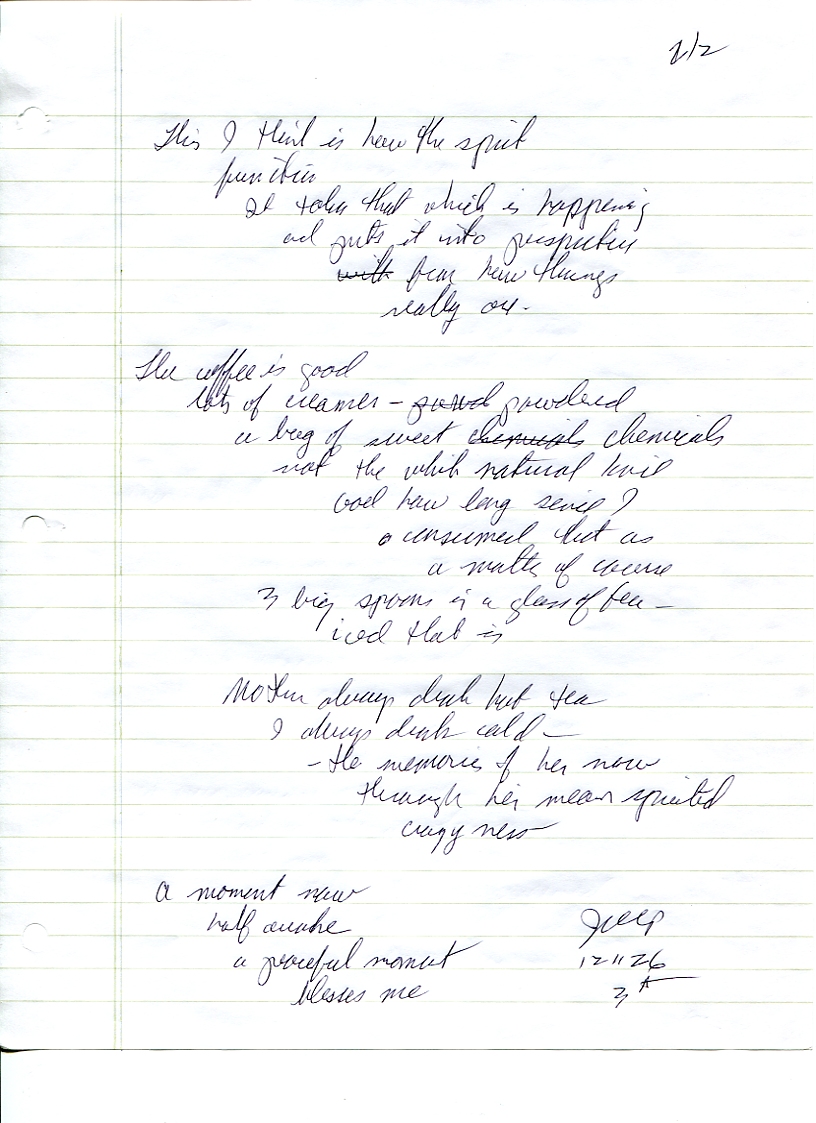 2/2
This I think is how the spirit
function
It takes that which is happening
and puts it into perspective
with from how things
really are.
The coffee is good
lots of creamer – powd powdered
a bag of sweet chemicals chemicals
not the white natural kind
God how long since I
consumed that as
a matter of course
3 big spoons in a glass of tea –
iced that is
Mother always drank hot tea
I always drank cold –
– the memories of her now
through her mean spirited
crazyness
a moment now
half awake
a peaceful moment
blesses me
121126